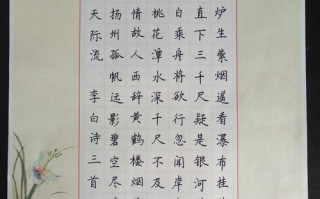 炉生紫烟遥看瀑布挂
直下三千尺疑是银河
白乘舟将欲行忽闻岸
桃花潭水深千尺不及
情故人西辞黄鹤楼烟
扬州孤帆远影碧空尽
天际流 李白诗三首